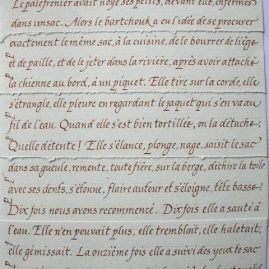 Le palefrenier avait noyé ses petits, devant elle, enfermés
dans un sac. Alors le bartchouk a eu l'idée de se procurer
exactement le même sac, à la cuisine, de le bourrer de liège
et de paille, et de le jeter dans la rivière, après avoir attaché
la chienne au bord, à un piquet. Elle tire sur la corde, elle
s'étrangle, elle pleure en regardant le paquet qui s'en va au
fil de l'eau. Quand elle s'est bien tortillée, on la détache.
Quelle détente ! Elle s'élance, plonge, nage, saisit le sac
dans sa gueule, remonte, toute fière, sur la berge, déchire la toile
avec ses dents, s'étonne, flaire autour et s'éloigne, tête basse.
Dix fois nous avons recommencé. Dix fois elle a sauté à
l'eau. Elle n'en pouvait plus, elle tremblait, elle haletait,
elle gémissait. La onzième fois elle a suivi des yeux le sac